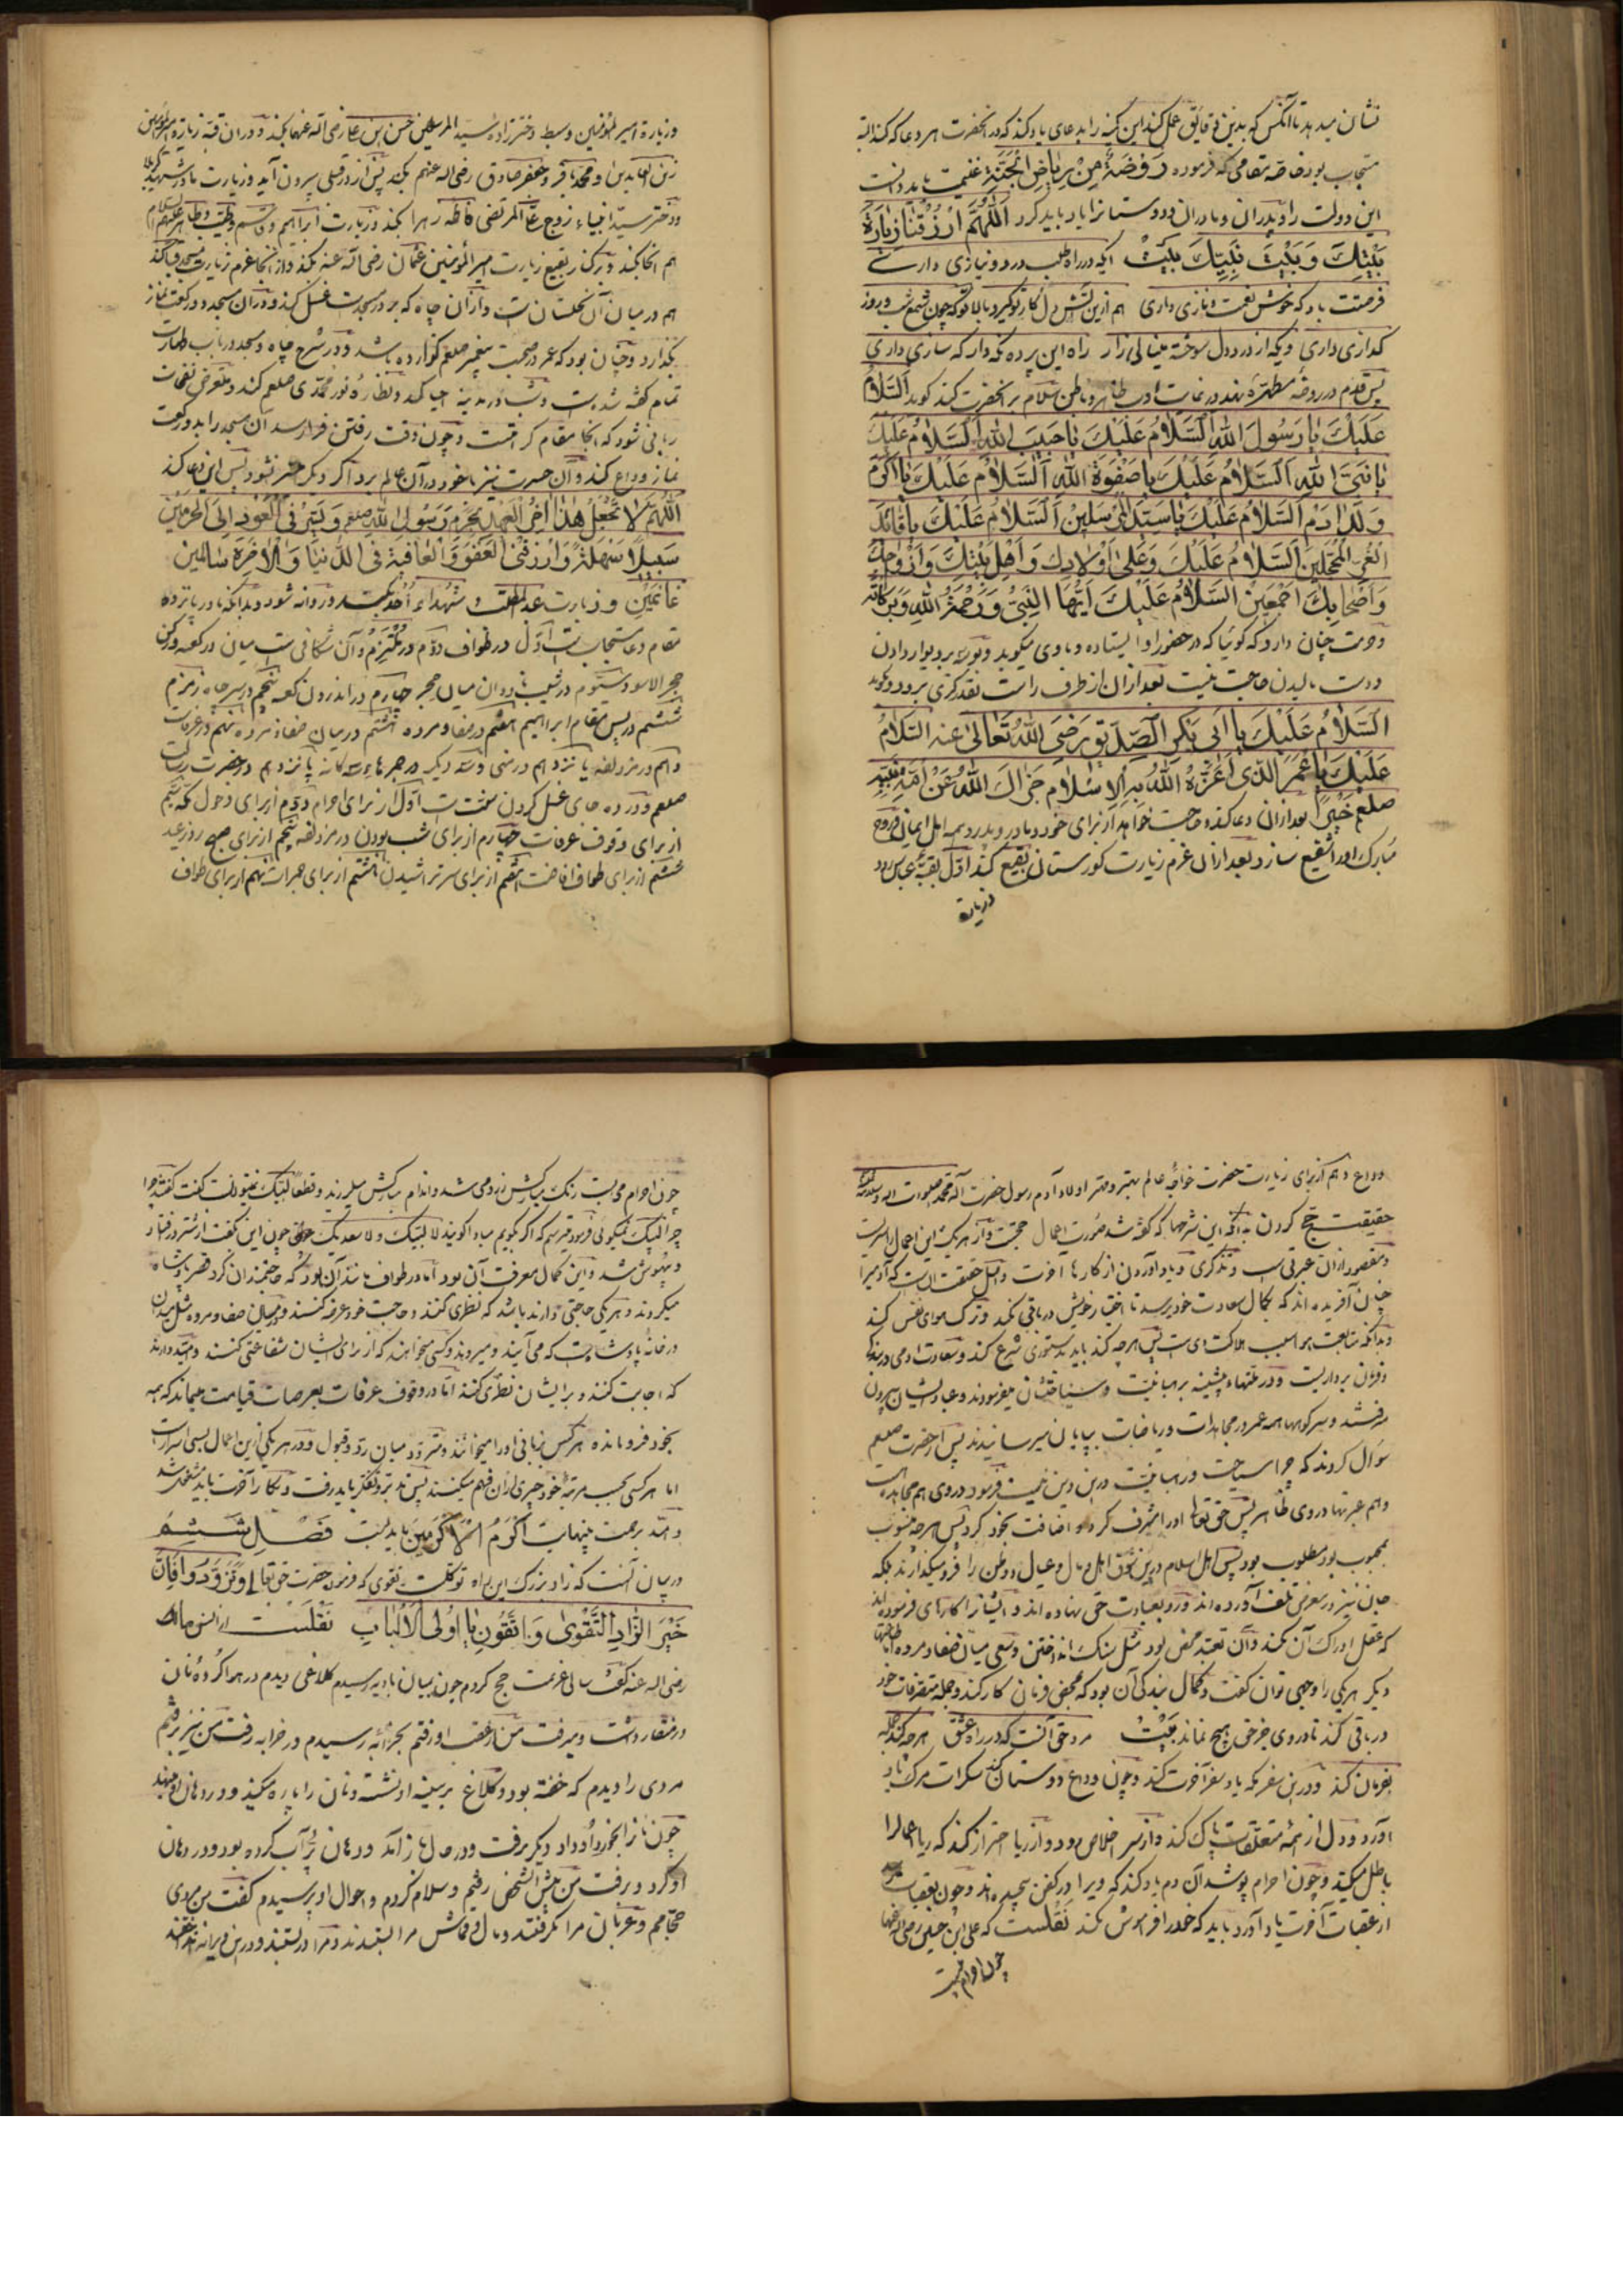 نشان میدهد تا آنکس که بدین دقایق عمل کند این کمینه را بدعای یاد کند که در آنحضرت هر دعا که کند البته
مستجاب بود خاصه مقامی که فرموده رَوْضَةٌ مِنْ رِیَاضِ الْجَنَّةِ غنیمت باید دانست
این دولت را و پدران و مادران و دوستانرا یاد باید کرد اَللّٰهُمَّ ارْزُقْنَا زِیَارَةَ
بَیْتِكَ وَبَیْتِ نَبِیِّكَ بَیْتْ ایکه در راه طلب درد و نیازی داری
فرصتت باد که خوش نعمت و نازی داری هم ازین آتش دل کار تو گیرد بالا تو که چون شمع شب و روز
گدازی داری ویکه از درد دل سوخته مینالی زار راه این پرده نگه دار که سازی داری
پس قدم در روضهٔ مطهره نهد در غایت ادب ظاهر و باطن سلام بر آنحضرت کند گوید اَلسَّلَامُ
عَلَیْكَ یَا رَسُولَ اللهِ اَلسَّلَامُ عَلَیْكَ یَا حَبِیبَ اللهِ اَلسَّلَامُ عَلَیْكَ
یَا نَبِیَّ اللهِ اَلسَّلَامُ عَلَیْكَ یَا صَفْوَةَ اللهِ اَلسَّلَامُ عَلَیْكَ یَا اَکْرَمَ
وَلَدِ اٰدَمَ اَلسَّلَامُ عَلَیْكَ یَا سَیِّدَ الْمُرْسَلِینَ اَلسَّلَامُ عَلَیْكَ یَا قَائِدَ
الْغُرِّ الْمُحَجَّلِینَ اَلسَّلَامُ عَلَیْكَ وَعَلٰی اَوْلَادِكَ وَاَهْلِ بَیْتِكَ وَاَزْوَاجِكَ
وَاَصْحَابِكَ اَجْمَعِینَ اَلسَّلَامُ عَلَیْكَ اَیُّهَا النَّبِیُّ وَرَحْمَةُ اللهِ وَبَرَکَاتُهُ
و حرمت چنان دارد که گوئیا که در حضور او ایستاده و با وی میگوید و بوسه بر دیوار دادن
و دست مالیدن حاجت نیست بعد ازان از طرف راست بقدر گزی برود و گوید
اَلسَّلَامُ عَلَیْكَ یَا اَبِی بَکْرٍ الصِّدِّیقِ رَضِیَ اللهُ تَعَالٰی عنه السَّلَامُ
عَلَیْكَ یَا عُمَرُ الَّذِی اَعَزَّهُ اللهُ بِهِ الْاِسْلَامَ جَزَاكَ اللهُ عَنْ اُمَّةِ نَبِیِّهِ
صلعم خَیْرًا بعد ازان دعا کند و حاجت خواهد از برای خود و مادر و پدر و همه اهل ایمان و روح
مبارك او را شفیع سازد بعد ازان عزم زیارت گورستان بقیع کند اول بقبهٔ عباس رود
و زیارة
و زیارة امیر المؤمنین و سبط دخترزاده سید المرسلین حسن بن علی رضی الله عنهما بکند و دران قبه زیارة
زین العابدین و محمد باقر و جعفر صادق رضی الله عنهم بکند پس از در قبلی بیرون آید و زیارت مادر
و دختر سید انبیاء زوج علی المرتضی فاطمه زهرا بکند و زیارت ابراهیم و قاسم و طیب و طاهر علیهم السلام
هم آنجا بکند و بر کنار بقیع زیارت امیر المؤمنین عثمان رضی الله عنه بکند و از آنجا عزم زیارت مسجد قبا کند
هم در میان آن نخلستان است و ازان چاه که بر در مسجدست غسل کند و دران مسجد دو رکعت نماز
بگذارد و چنان بود که عمر در صحبت پیغمبر صلعم گذارده باشد و در شرح چاه و مسجد در باب طهارت
تمام گفته شده است و شب در مدینه احیا کند و نظارهٔ نور محمدی صلعم کند و متعرض نفحات
ربانی شود که آنجا مقام کرامتست و چون وقت رفتن فرا رسد آن مسجد را بدو رکعت
نماز وداع کند و آن حسرت نیز با خود دران عالم برد اگر دیگر میسر نشود پس این دعا کند
اَللّٰهُمَّ لَا تَجْعَلْ هٰذَا اٰخِرَ الْعَهْدِ بِحَرَمِ رَسُولِ اللهِ صلعم وَیَسِّرْ لِی الْعَوْدَ اِلَی الْحَرَمَیْنِ
سَبِیلًا سَهْلَةً وَارْزُقْنِی الْعَفْوَ وَالْعَافِیَةَ فِی الدُّنْیَا وَالْاٰخِرَةِ سَالِمِینَ
غَانِمِین و زیارت عبد المطلب و شهداء اُحُد بکند و روانه شود و بدانکه در پانزده
مقام دعا مستجابست اول در طواف دوم در ملتزم و آن شکافی است میان در کعبه و رکن
حجر الاسود سیوم در شیب ناودان میان حجر چهارم در اندرون کعبه پنجم در سر چاه زمزم
ششم در پس مقام ابراهیم هفتم در صفا و مروه هشتم در میان صفا و مروه نهم در عرفات
دهم در مزدلفه یازدهم در منی و سه دیگر در جمرهاء سه گانه پانزدهم در حضرت رسالت
صلعم و در ده جای غسل کردن سنت است اول از برای احرام دوم از برای دخول مکه سیم
از برای وقوف عرفات چهارم از برای شب بودن در مزدلفه پنجم از برای صبح روز عید
ششم از برای طواف افاضت هفتم از برای سر تراشیدن هشتم از برای جمرات نهم از برای طواف
وداع دهم از برای زیارت حضرت خواجهٔ عالم بهتر و مهتر اولاد آدم رسول حضرت اله محمد صلوات الله و سلامه علیه
حقیقت حج کردن بدانکه این شرحها که گفته شد صورت اعمال حجست و از هر یک این اعمال سریست
و مقصود ازان عبرتی است و تذکری و یاد آوردن از کارهاء آخرت و اصل حقیقت آنست که آدمی را
چنان آفریده اند که بکمال سعادت خود نرسد تا اختیار خویش در باقی نکند و ترك هوای نفس کند
و بدانکه متابعت هوا سبب هلاکت وی است پس هرچه کند باید بدستوری شرع کند و سعادت آدمی در بندگی
و فرمان برداریست و در ملتهاء پیشینه برهبانیت و سیاحتشان میفرمودند و عباد ایشان بیرون
میرفتند و بسر کوهها همه عمر در مجاهدات و ریاضات بپایان میرسانیدند پس از حضرت صلعم
سؤال کردند که چرا سیاحت و رهبانیت درین دین نیست فرمود در وی هم مجاهدت
و هم عبرتها در وی ظاهر پس حق تعالی او را مشرف کرد و اضافت بخود کرد پس هرچه منسوب
بمحبوب بود مطلوب بود پس اهل اسلام درین شوق اهل و مال و عیال و وطن را فرو میگذارند بلکه
جان نیز در معرض تلف آورده اند و رو بعبادت حق نهاده اند و ایشانرا کارهای فرموده اند
که عقل ادراك آن نکند و آن تعبد محض بود مثل سنك انداختن و سعی میان صفا و مروه
دیگر هر یکی را وجهی توان گفت و کمال بندگی آن بود که بمحض فرمان کار کند و جمله متصرفات خود
در باقی کند تا در وی جز حق هیچ نماند بَیْتْ مرد حق آنست که در راه عشق هرچه کند جمله
بفرمان کند و درین سفر مکه یاد سفر آخرت کند و چون وداع دوستان کند سکرات مرگ یاد
آورد و دل از همهٔ متعلقات پاك کند و از سر اخلاص رود و از ریا احتراز کند که ریا عمل را
باطل میکند و چون احرام پوشد آن دم یاد کند که ویرا در کفن پیچیده اند و چون بعقبات رسد
از عقبات آخرت یاد آورد باید که خدا را فراموش نکند نَقْلَست که علی بن حسین رضی الله عنهما
چون احرام می‌بست
چون احرام می‌بست رنك مبارکش زرد می شد و اندام مبارکش میلرزید و قطعا لبیک نمیتوانست گفت گفتند چرا
چرا لبیک نمیگوئی فرمود میترسم که اگر بگویم مبادا گویند لا لبیک و لا سعدیک چون این گفت از شتر در افتاد
و بیهوش شد و این کمال معرفت آن بود اما در طواف مانند آن بود که حاجتمندان گرد قصر پادشاه
میگردند و هر یکی حاجتی دارند باشد که نظری کنند و حاجت خود عرضه کنند و در میان صفا و مروه مثل میدان
در خانهٔ پادشاه است که می آیند و میروند و کسی میخواهند که از برای ایشان شفاعتی کنند و امید دارند
که اجابت کنند و بر ایشان نظری کنند اما در وقوف عرفات بعرصات قیامت میماند که همه
بخود فرو مانده هر کس بزبانی او را میخوانند و متردد میان رد و قبول و در هر یکی ازین اعمال بسی اسرارست
اما هر کسی بحسب مرتبهٔ خود چیزی ازان فهم میکنند پس بتدبر و تفکر باید رفت و بکار آخرت باید مشغول شد
و امید برحمت بینهایت اَکْرَمُ الْاَکْرَمِین باید داشت فَصْلِ شَشُمْ
در بیان آنست که زاد بزرگ این راه توکلست و تقوی که فرمود حضرت حق تعالی وَتَزَوَّدُوا فَاِنَّ
خَیْرَ الزَّادِ التَّقْوٰی وَاتَّقُونِ یَا اُولِی الْاَلْبَابِ نَقْلَست از انس مالك
رضی الله عنه گفت سالی عزیمت حج کردم چون بمیان بادیه رسیدم کلاغی دیدم در هوا گردهٔ نان
در منقار داشت و میرفت من از عقب او رفتم بخرابهٔ رسیدم در خرابه رفت من نیز برفتم
مردی را دیدم که خفته بود و کلاغ بر سینه او نشسته و نان را پاره میکند و در دهان او مینهد
چون نانرا بخورد او داد دیگر برفت و در حال باز آمد و دهان پُر آب کرده بود و در دهان
او کرد و برفت من پیش آن شخص رفتم و سلام کردم و احوال او پرسیدم گفت من مردی
حجامم و عربان مرا بگرفتند و مال و قماش مرا ستدند و مرا بربستند و درین ویرانه